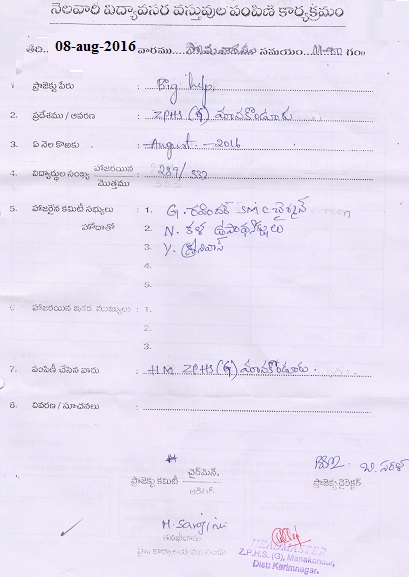 నెలవారి విద్యావసర వస్తువుల పంపిణి కార్యక్రమం
తేది.. 08-aug-2016 వారము....సోమవారము సమయం.... గం॥
1. ప్రాజెక్టు పేరు : Big help
2. ప్రదేశము / ఆవరణ : ZPHS (G) మానకొండూరు
3. ఏ నెల కొఱకు : August - 2016
4. విద్యార్థుల సంఖ్య హాజరయిన / మొత్తము : 289/332
5. హాజరైన కమిటీ సభ్యులు : 1. G. రవీందర్ SMC చైర్మన్
హోదాతో 2. N. కళ
3. Y. శ్రీనివాస్
4.
5.
6. హాజరయిన ఇతర ముఖ్యులు : 1.
2.
3.
7. పంపిణీ చేసిన వారు : HM ZPHS (G) మానకొండూరు.
8. వివరణ / సూచనలు :
ప్రాజెక్టు కమిటీ చైర్‌మెన్ ప్రాజెక్టు డైరెక్టర్
M. Sarojini
HEADMASTER
Z.P.H.S. (G), Manakondur,
Dist: Karimnagar.